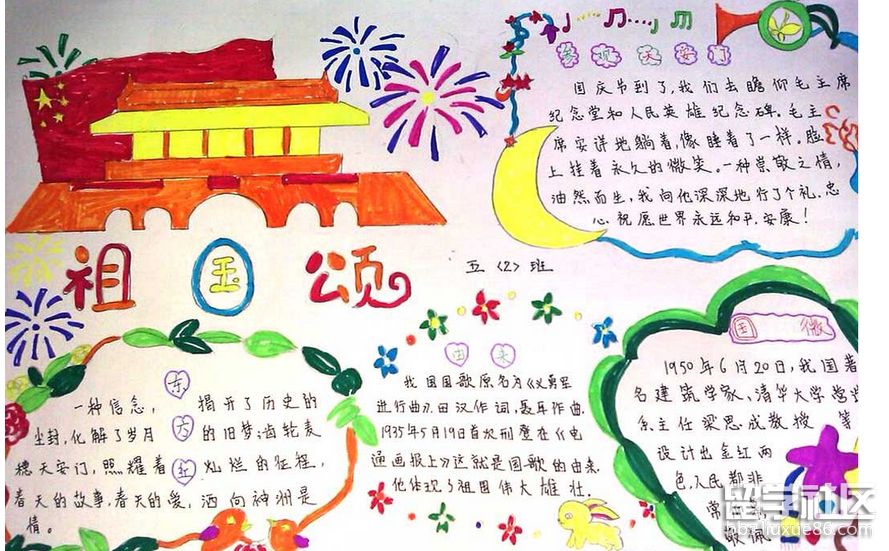 祖国颂
五〈2〉班
参观天安门
国庆节到了,我们去瞻仰毛主席
纪念堂和人民英雄纪念碑。毛主
席安详地躺着,像睡着了一样。脸
上挂着永久的微笑。一种崇敬之情,
油然而生,我向他深深地行了个礼。忠
心祝愿世界永远和平、安康!
东方红
一种信念, 揭开了历史的
尘封,化解了岁月的旧梦;齿轮表
穗天安门,照耀着灿烂的征程,
春天的故事,春天的爱,洒向神洲是
情。
由来
我国国歌原名为《义勇军
进行曲》,田汉作词,聂耳作曲.
1935年5月19日首次刊登在《电
通画报上》这就是国歌的由来.
他体现了祖国伟大雄壮.
国徽
1950年6月20日,我国著
名建筑学家、清华大学营
系主任梁思成教授 等
设计出金红两
色,人民都非
常
敬佩
留学社区
bbs.liuxue86.com